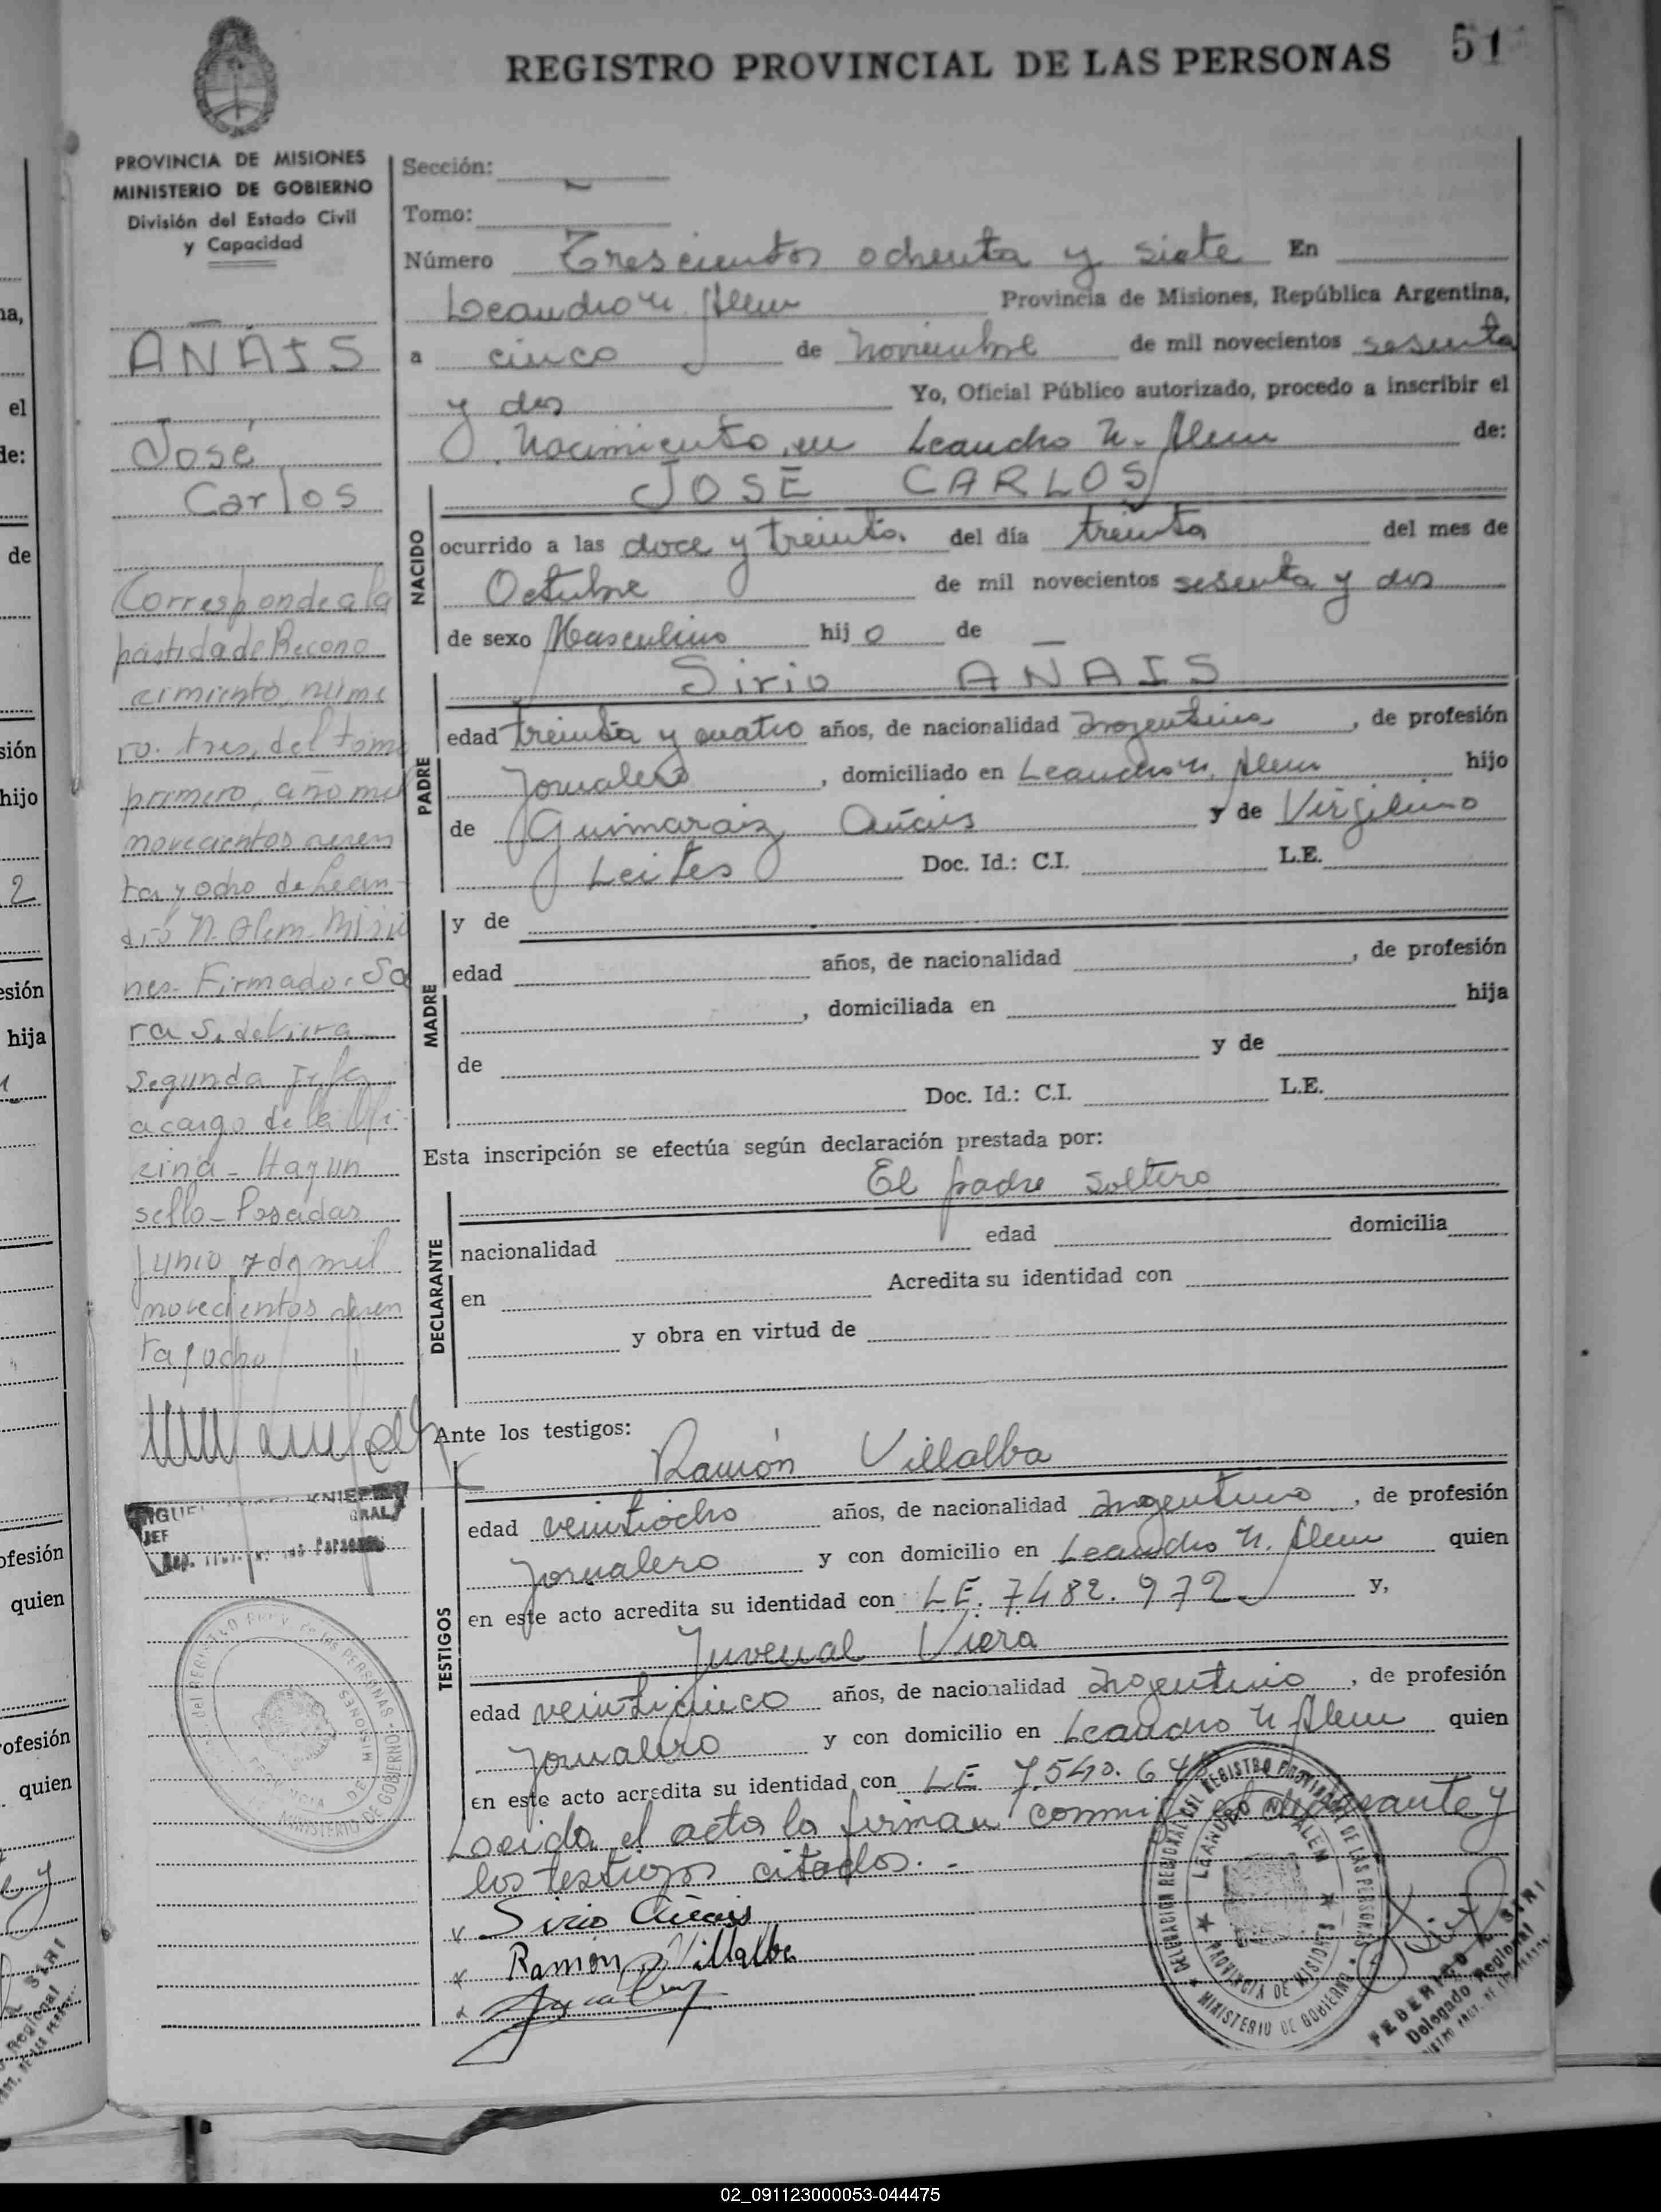 REGISTRO PROVINCIAL DE LAS PERSONAS 51
PROVINCIA DE MISIONES
MINISTERIO DE GOBIERNO
División del Estado Civil
y Capacidad
AÑAIS
José
Carlos
Corresponde a la
partida de Recono
cimiento, núme
ro tres, del tomo
primero, año mil
novecientos sesen
ta y ocho de Lean-
dro N. Alem - Misio
nes - Firmado: Sa
ra S. de Viera
Segunda Jefa
a cargo de la Ofi-
cina - Hay un
sello - Posadas
Junio 7 de mil
novecientos sesen
ta y ocho
Sección:
Tomo:
Número Trescientos ochenta y siete En
Leandro N. Alem Provincia de Misiones, República Argentina,
a cinco de Noviembre de mil novecientos sesenta
y dos Yo, Oficial Público autorizado, procedo a inscribir el
Nacimiento, en Leandro N. Alem de:
NACIDO
JOSÉ CARLOS
ocurrido a las doce y treinta del día treinta del mes de
Octubre de mil novecientos sesenta y dos
de sexo Masculino hijo de —
PADRE
Sirio AÑAIS
edad treinta y cuatro años, de nacionalidad Argentina, de profesión
Jornalero, domiciliado en Leandro N. Alem hijo
de Guimaraiz Añais y de Virgilina
Leites Doc. Id.: C.I. L.E.
MADRE
y de
edad años, de nacionalidad , de profesión
, domiciliada en hija
de y de
Doc. Id.: C.I. L.E.
Esta inscripción se efectúa según declaración prestada por:
El padre soltero
DECLARANTE
nacionalidad edad domicilia
en Acredita su identidad con
y obra en virtud de
Ante los testigos:
TESTIGOS
Ramón Villalba
edad veintiocho años, de nacionalidad Argentino, de profesión
Jornalero y con domicilio en Leandro N. Alem quien
en este acto acredita su identidad con L.E. 7.482.972 y,
Juvenal Viera
edad veinticinco años, de nacionalidad Argentino, de profesión
Jornalero y con domicilio en Leandro N Alem quien
en este acto acredita su identidad con LE 7.540.64
Leeida el acta la firman conmigo el declarante y
los testigos citados. -
Sirio Añais
Ramón Villalba
DELEGACION REGIONAL DEL REGISTRO PROVINCIAL DE LAS PERSONAS
LEANDRO N. ALEM
PROVINCIA DE MISIONES
MINISTERIO DE GOBIERNO
FEDERICO
Delegado Regional
02_091123000053-044475